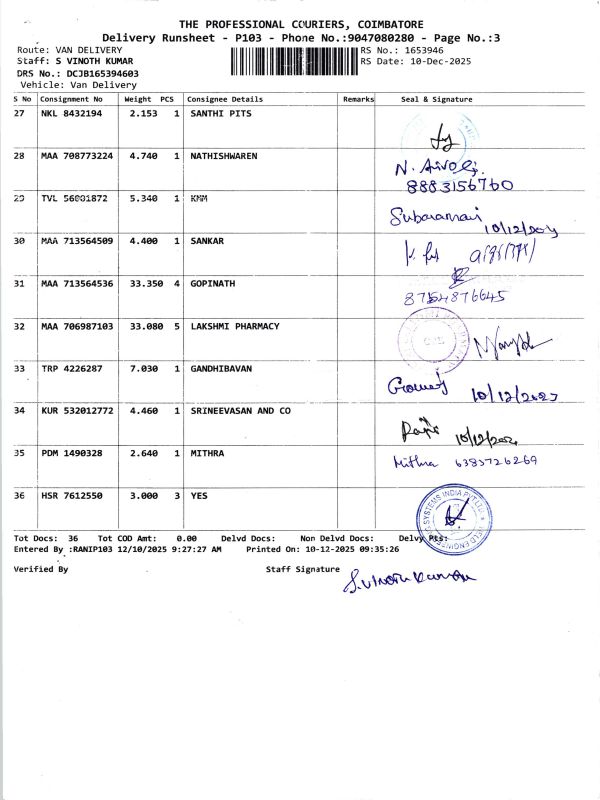 THE PROFESSIONAL COURIERS, COIMBATORE
Delivery Runsheet - P103 - Phone No.:9047080280 - Page No.:3
Route: VAN DELIVERY
RS No.: 1653946
Staff: S VINOTH KUMAR
RS Date: 10-Dec-2025
DRS No.: DCJB165394603
Vehicle: Van Delivery
S No Consignment No Weight PCS Consignee Details Remarks Seal & Signature
27 NKL 8432194 2.153 1 SANTHI PITS
28 MAA 708773224 4.740 1 NATHISHWAREN
8883156760
29 TVL 56001872 5.340 1 KMM
10/12/
30 MAA 713564509 4.400 1 SANKAR
31 MAA 713564536 33.350 4 GOPINATH
8754876645
32 MAA 706987103 33.080 5 LAKSHMI PHARMACY
33 TRP 4226287 7.030 1 GANDHIBAVAN
10/12/2025
34 KUR 532012772 4.460 1 SRINEEVASAN AND CO
35 PDM 1490328 2.640 1 MITHRA Mithra 6383726269
36 HSR 7612550 3.000 3 YES
SYSTEMS INDIA PVT LTD
Tot Docs: 36 Tot COD Amt: 0.00 Delvd Docs: Non Delvd Docs: Delvy Pts:
Entered By :RANIP103 12/10/2025 9:27:27 AM Printed On: 10-12-2025 09:35:26
Verified By Staff Signature S. Vinoth Kumar